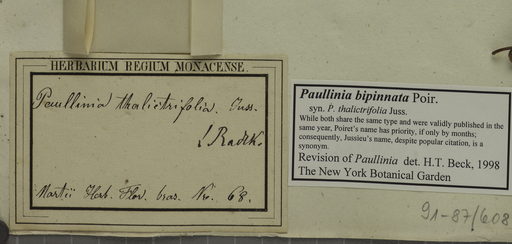 HERBARIUM REGIUM MONACENSE.
Paullinia thalictrifolia. Juss.
Radlk.
Martii Herb. Flor. bras. No. 68.
Paullinia bipinnata Poir.
syn. P. thalictrifolia Juss.
While both share the same type and were validly published in the
same year, Poiret's name has priority, if only by months;
consequently, Jussieu's name, despite popular citation, is a
synonym.
Revision of Paullinia det. H.T. Beck, 1998
The New York Botanical Garden
91-87/608